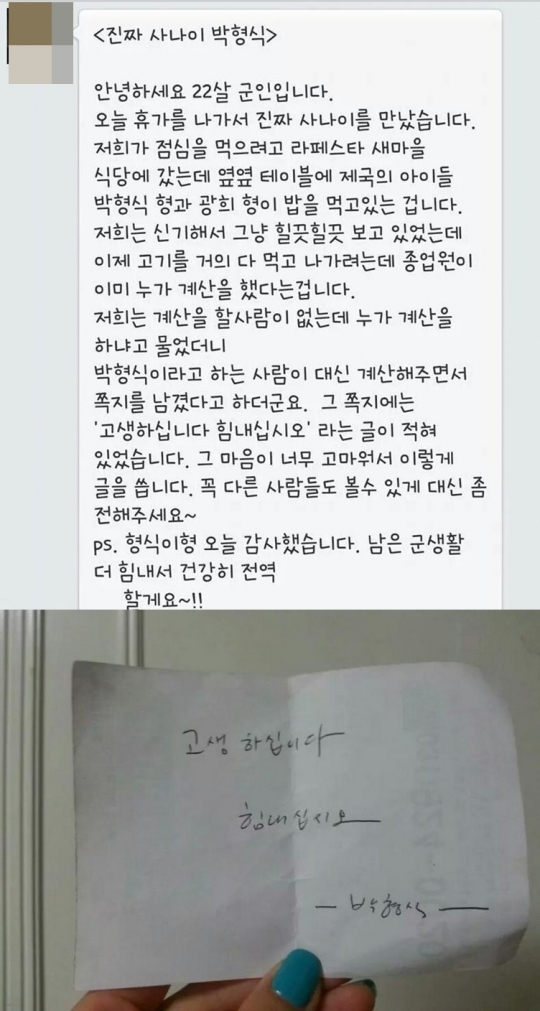 <진짜 사나이 박형식>
안녕하세요 22살 군인입니다.
오늘 휴가를 나가서 진짜 사나이를 만났습니다.
저희가 점심을 먹으려고 라페스타 새마을
식당에 갔는데 옆옆 테이블에 제국의 아이들
박형식 형과 광희 형이 밥을 먹고있는 겁니다.
저희는 신기해서 그냥 힐끗힐끗 보고 있었는데
이제 고기를 거의 다 먹고 나가려는데 종업원이
이미 누가 계산을 했다는겁니다.
저희는 계산을 할사람이 없는데 누가 계산을
하냐고 물었더니
박형식이라고 하는 사람이 대신 계산해주면서
쪽지를 남겼다고 하더군요. 그 쪽지에는
'고생하십니다 힘내십시오' 라는 글이 적혀
있었습니다. 그 마음이 너무 고마워서 이렇게
글을 씁니다. 꼭 다른 사람들도 볼수 있게 대신 좀
전해주세요~
ps. 형식이형 오늘 감사했습니다. 남은 군생활
더 힘내서 건강히 전역
할게요~!!
고생 하십니다
힘내십시오
— 박형식 —